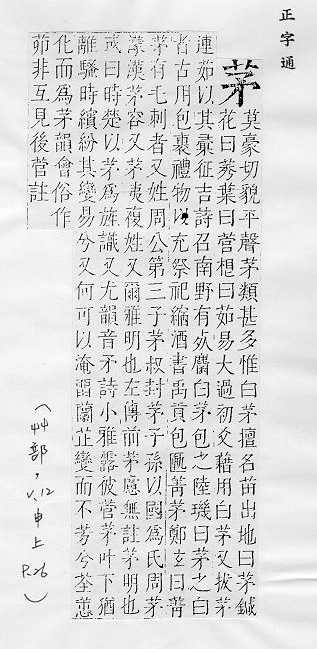 正字通
茅
莫豪切貌平聲茅類甚多惟白茅擅名苗出地曰茅鍼
花曰莠葉曰菅根曰茹易大過初爻藉用白茅又拔茅
連茹以其彙征吉詩召南野有死麕白茅包之陸璣曰茅之白
者古用包裹禮物以充祭祀縮酒書禹貢包匭菁茅鄭玄曰菁
茅有毛刺者又姓周公第三子茅叔封茅子孫以國爲氏周茅
濛漢茅容又茅夷複姓又爾雅明也左傳前茅慮無註茅明也
或曰時楚以茅爲旌識又尤韻音矛詩小雅露彼菅茅叶下猶
離騷時繽紛其變易兮又何可以淹留蘭芷變而不芳兮荃蕙
化而爲茅韻會俗作
茆非互見後菅註
(艸部, v.12 申上 P.26)